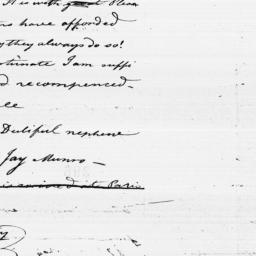 It is with great Pleas
ers have afforded
y they always do so!
ortunate I am suffi
d recompenced.
ce
Dutiful nephew
Jay Munro —
is arrived at Paris